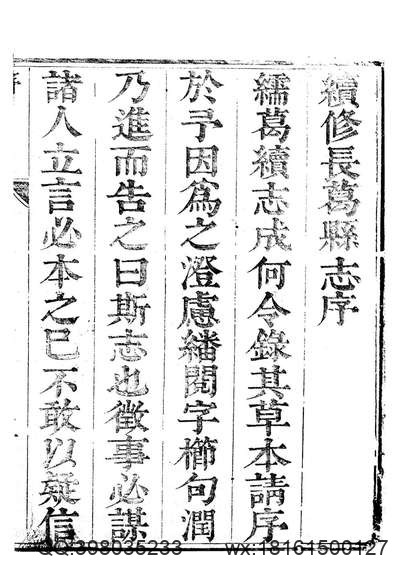 續修長葛縣志序
繻葛續志成何令錄其草本請序
於予因爲之澄慮繙閱字櫛句潤
乃進而告之曰斯志也徵事必謀
諸人立言必本之已不敢以疑信
QQ:398035233 wx:18161500127